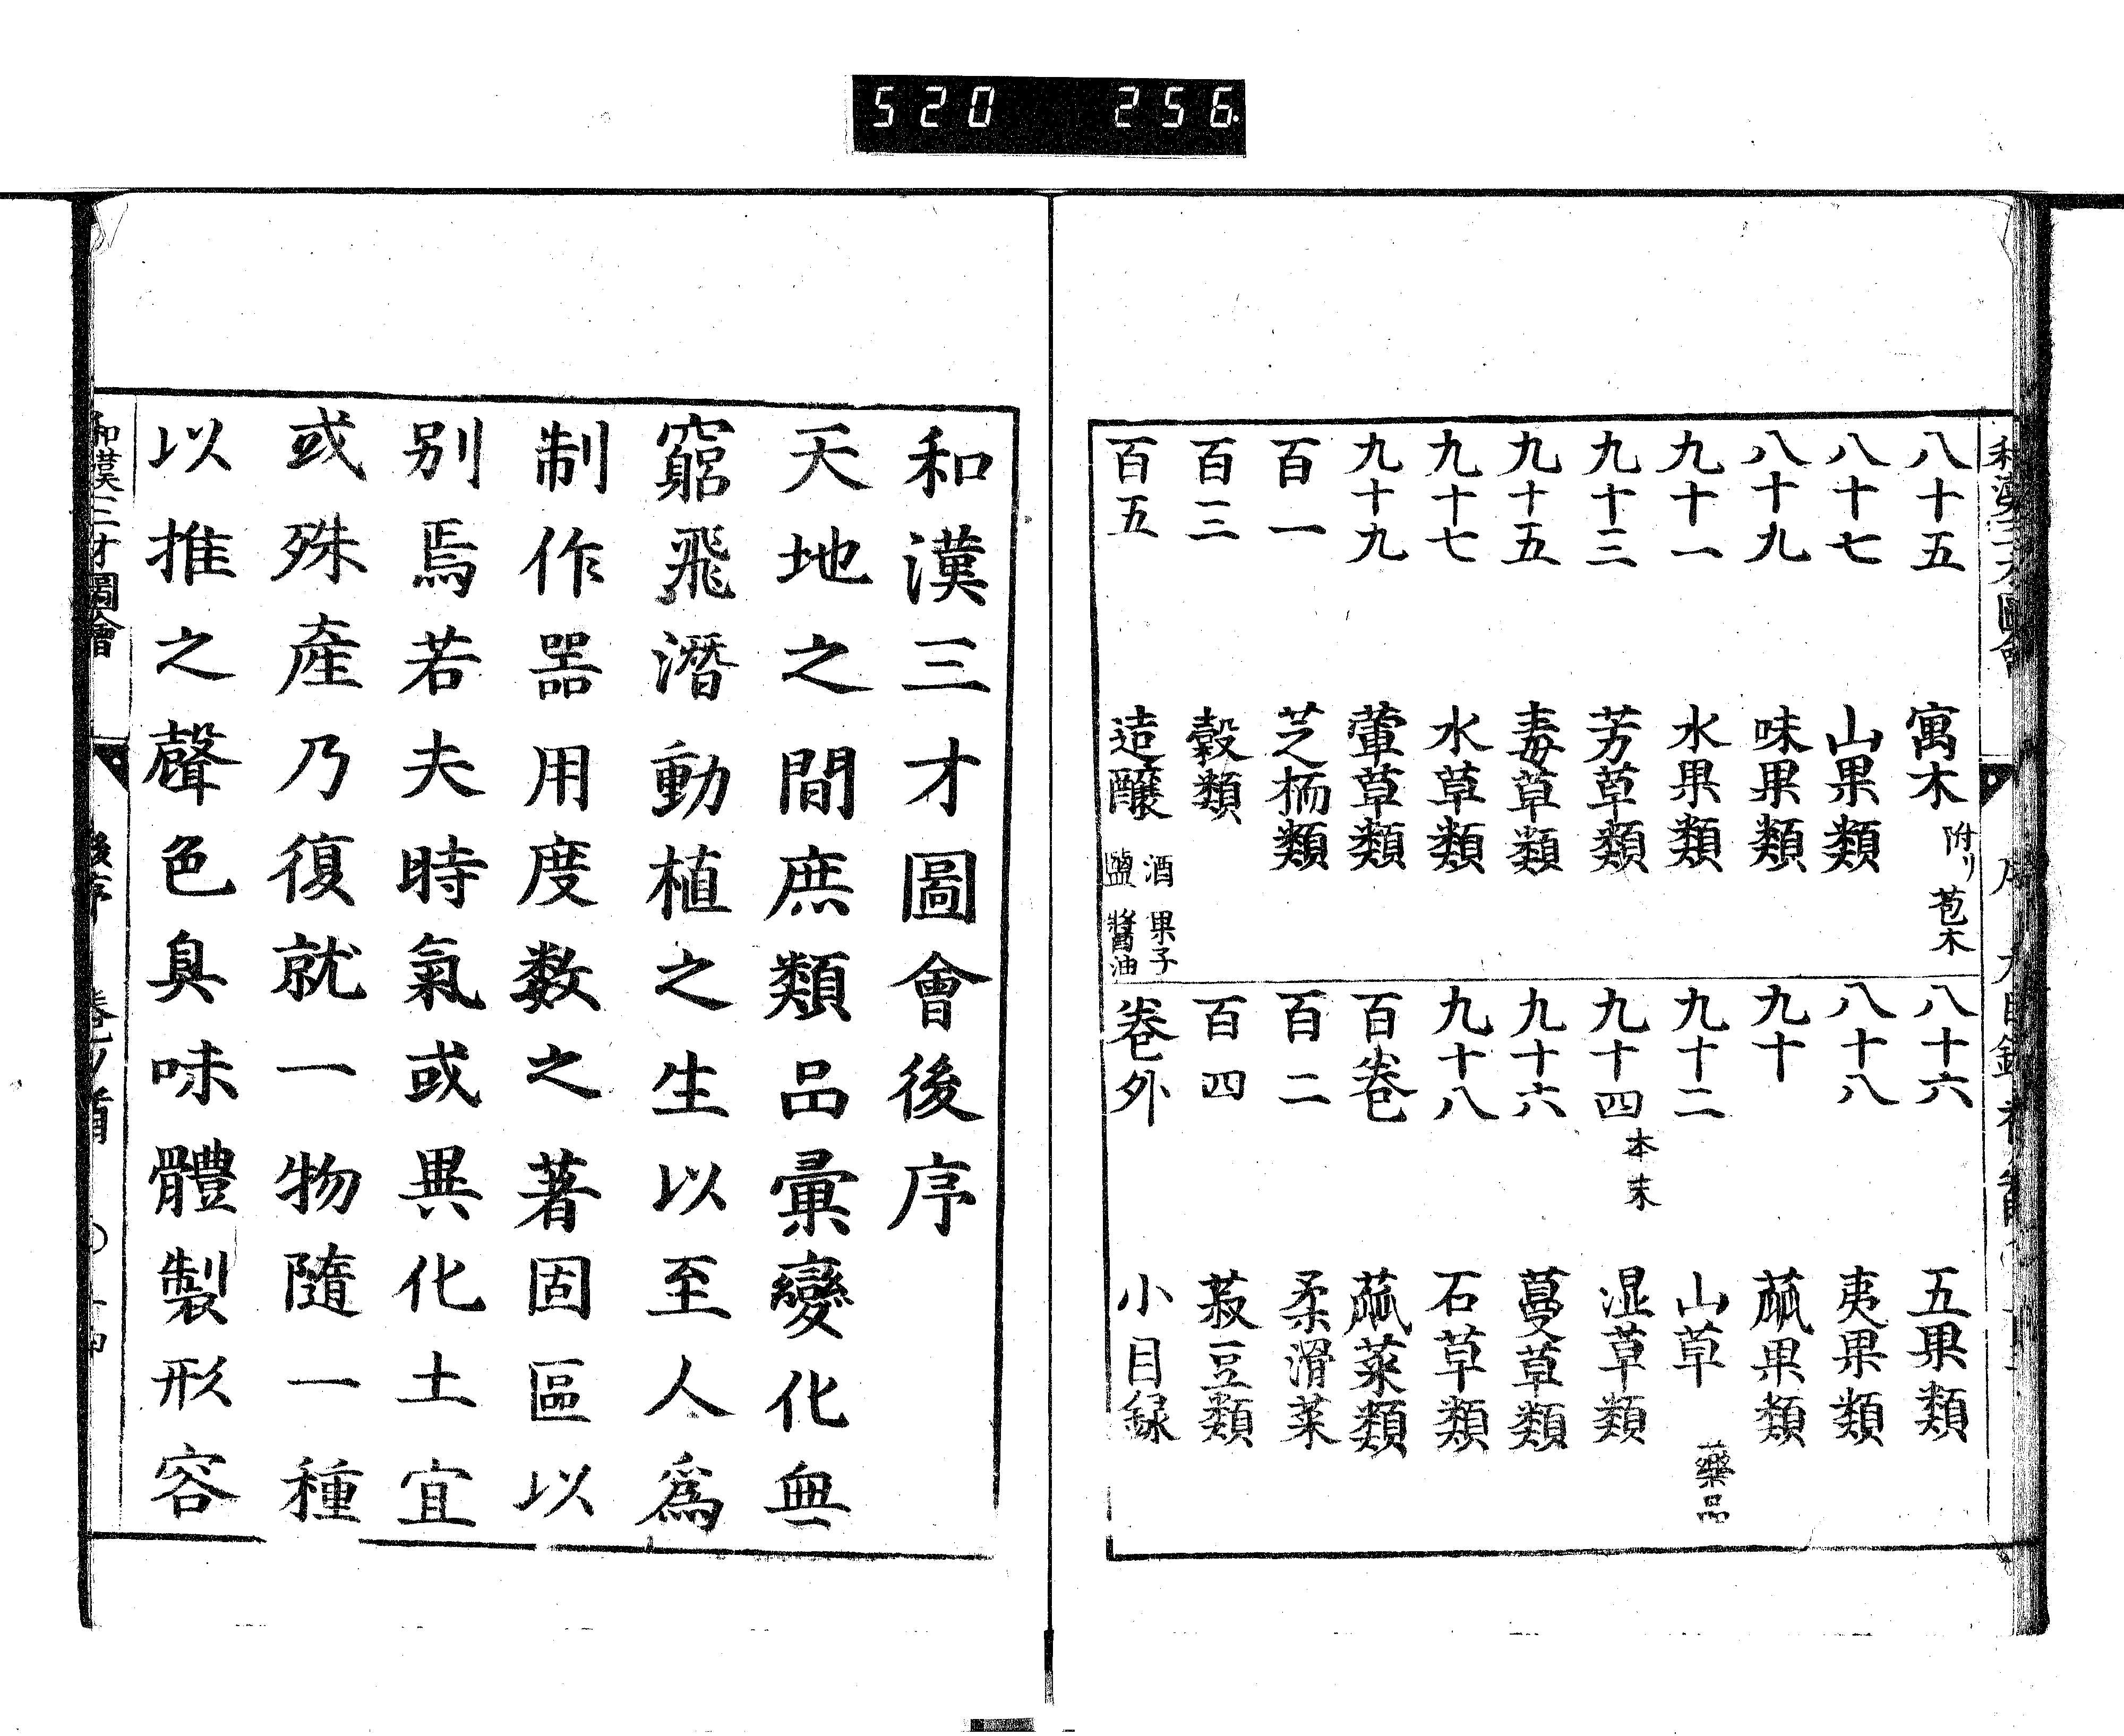 520 256
八十五 寓木 附リ 苞木
八十七 山果類
八十九 味果類
九十一 水果類
九十三 芳草類
九十五 毒草類
九十七 水草類
九十九 葷草類
百一 芝栭類
百三 穀類
百五 造醸 酒 果子 鹽 醬油
八十六 五果類
八十八 夷果類
九十 蓏果類
九十二 山草 藥品
九十四 本末 湿草類
九十六 蔓草類
九十八 石草類
百卷 蓏菜類
百二 柔滑菜
百四 菽豆類
卷外 小目録
和漢三才圖會後序
天地之間庶類品彙變化無
窮飛潛動植之生以至人爲
制作噐用度数之著固區以
别焉若夫時氣或異化土宜
或殊產乃復就一物隨一種
以推之聲色臭味體製形容
和漢三才圖會 後序 卷ノ首